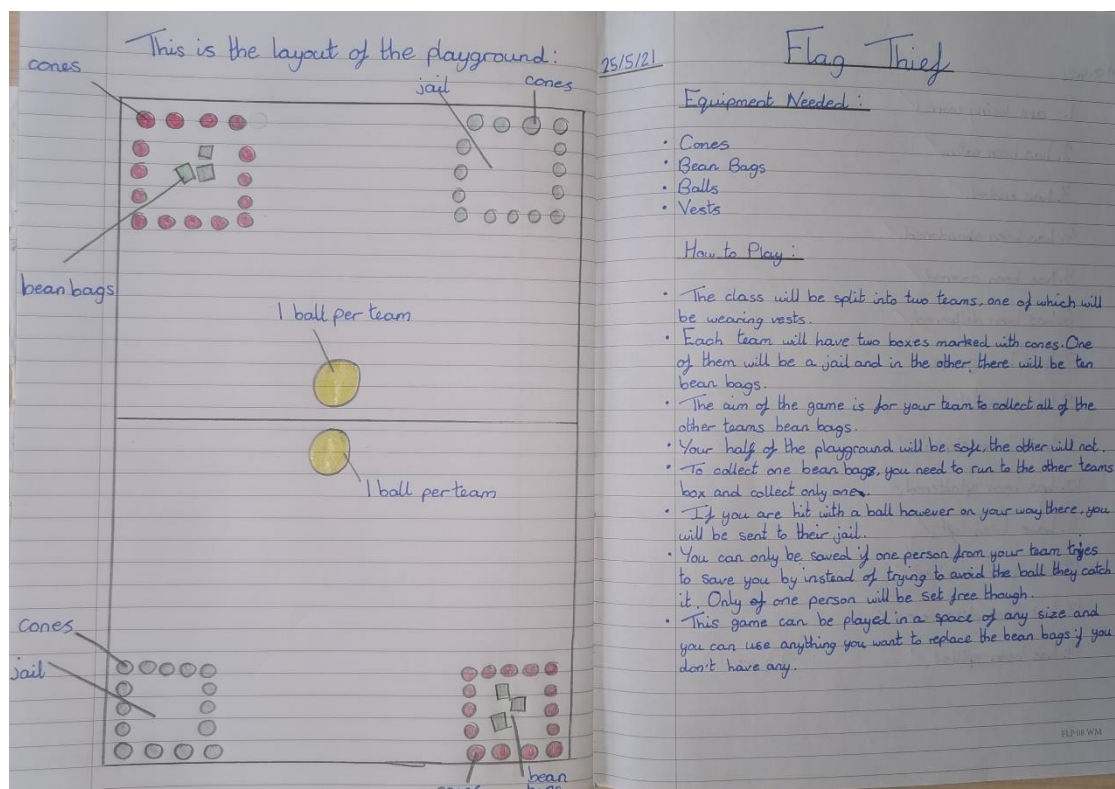 This is the layout of the playground:
cones
jail
cones
bean bags
1 ball per team
1 ball per team
cones
jail
bean
25/5/21
Flag Thief
Equipment Needed:
• Cones
• Bean Bags
• Balls
• Vests
How to Play:
• The class will be split into two teams, one of which will
be wearing vests.
• Each team will have two boxes marked with cones. One
of them will be a jail and in the other, there will be ten
bean bags.
• The aim of the game is for your team to collect all of the
other teams bean bags.
• Your half of the playground will be safe, the other will not.
• To collect one bean bags, you need to run to the other teams
box and collect only one.
• If you are hit with a ball however on your way there, you
will be sent to their jail.
• You can only be saved if one person from your team tries
to save you by instead of trying to avoid the ball they catch
it. Only of one person will be set free though.
• This game can be played in a space of any size and
you can use anything you want to replace the bean bags if you
don't have any.
FLP 08 WM